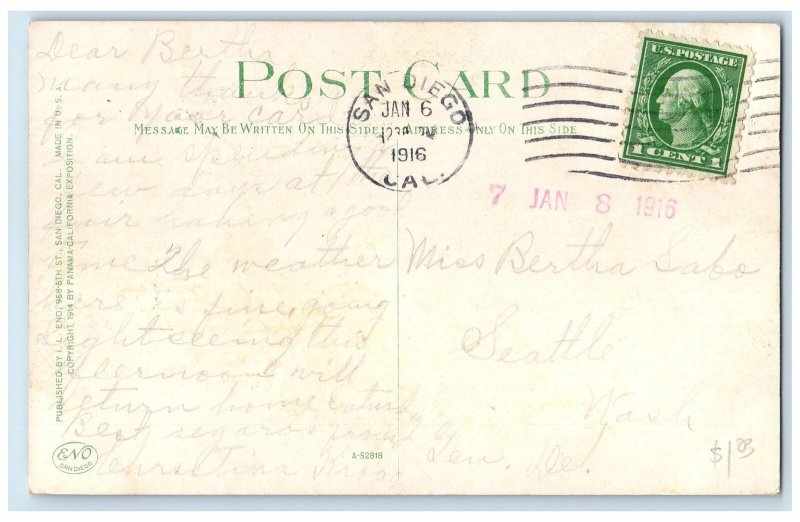 POST CARD
MESSAGE MAY BE WRITTEN ON THIS SIDE
ADDRESS ONLY ON THIS SIDE
PUBLISHED BY I. L. ENO, 968-5TH ST., SAN DIEGO, CAL. MADE IN U. S. A.
COPYRIGHT, 1914 BY PANAMA-CALIFORNIA EXPOSITION.
SAN DIEGO
JAN 6
1916
CAL.
U.S. POSTAGE
1 CENT 1
7 JAN 8 1916
Dear Bertha
Many thanks
for your card
am spending
few days at the
fair having a good
time The weather
here is fine, going
sightseeing this
afternoon will
return home
Best regards from
Christina
Miss Bertha Sabo
Seattle
Wash
Gen. De.
ENO
SAN DIEGO
A-52818